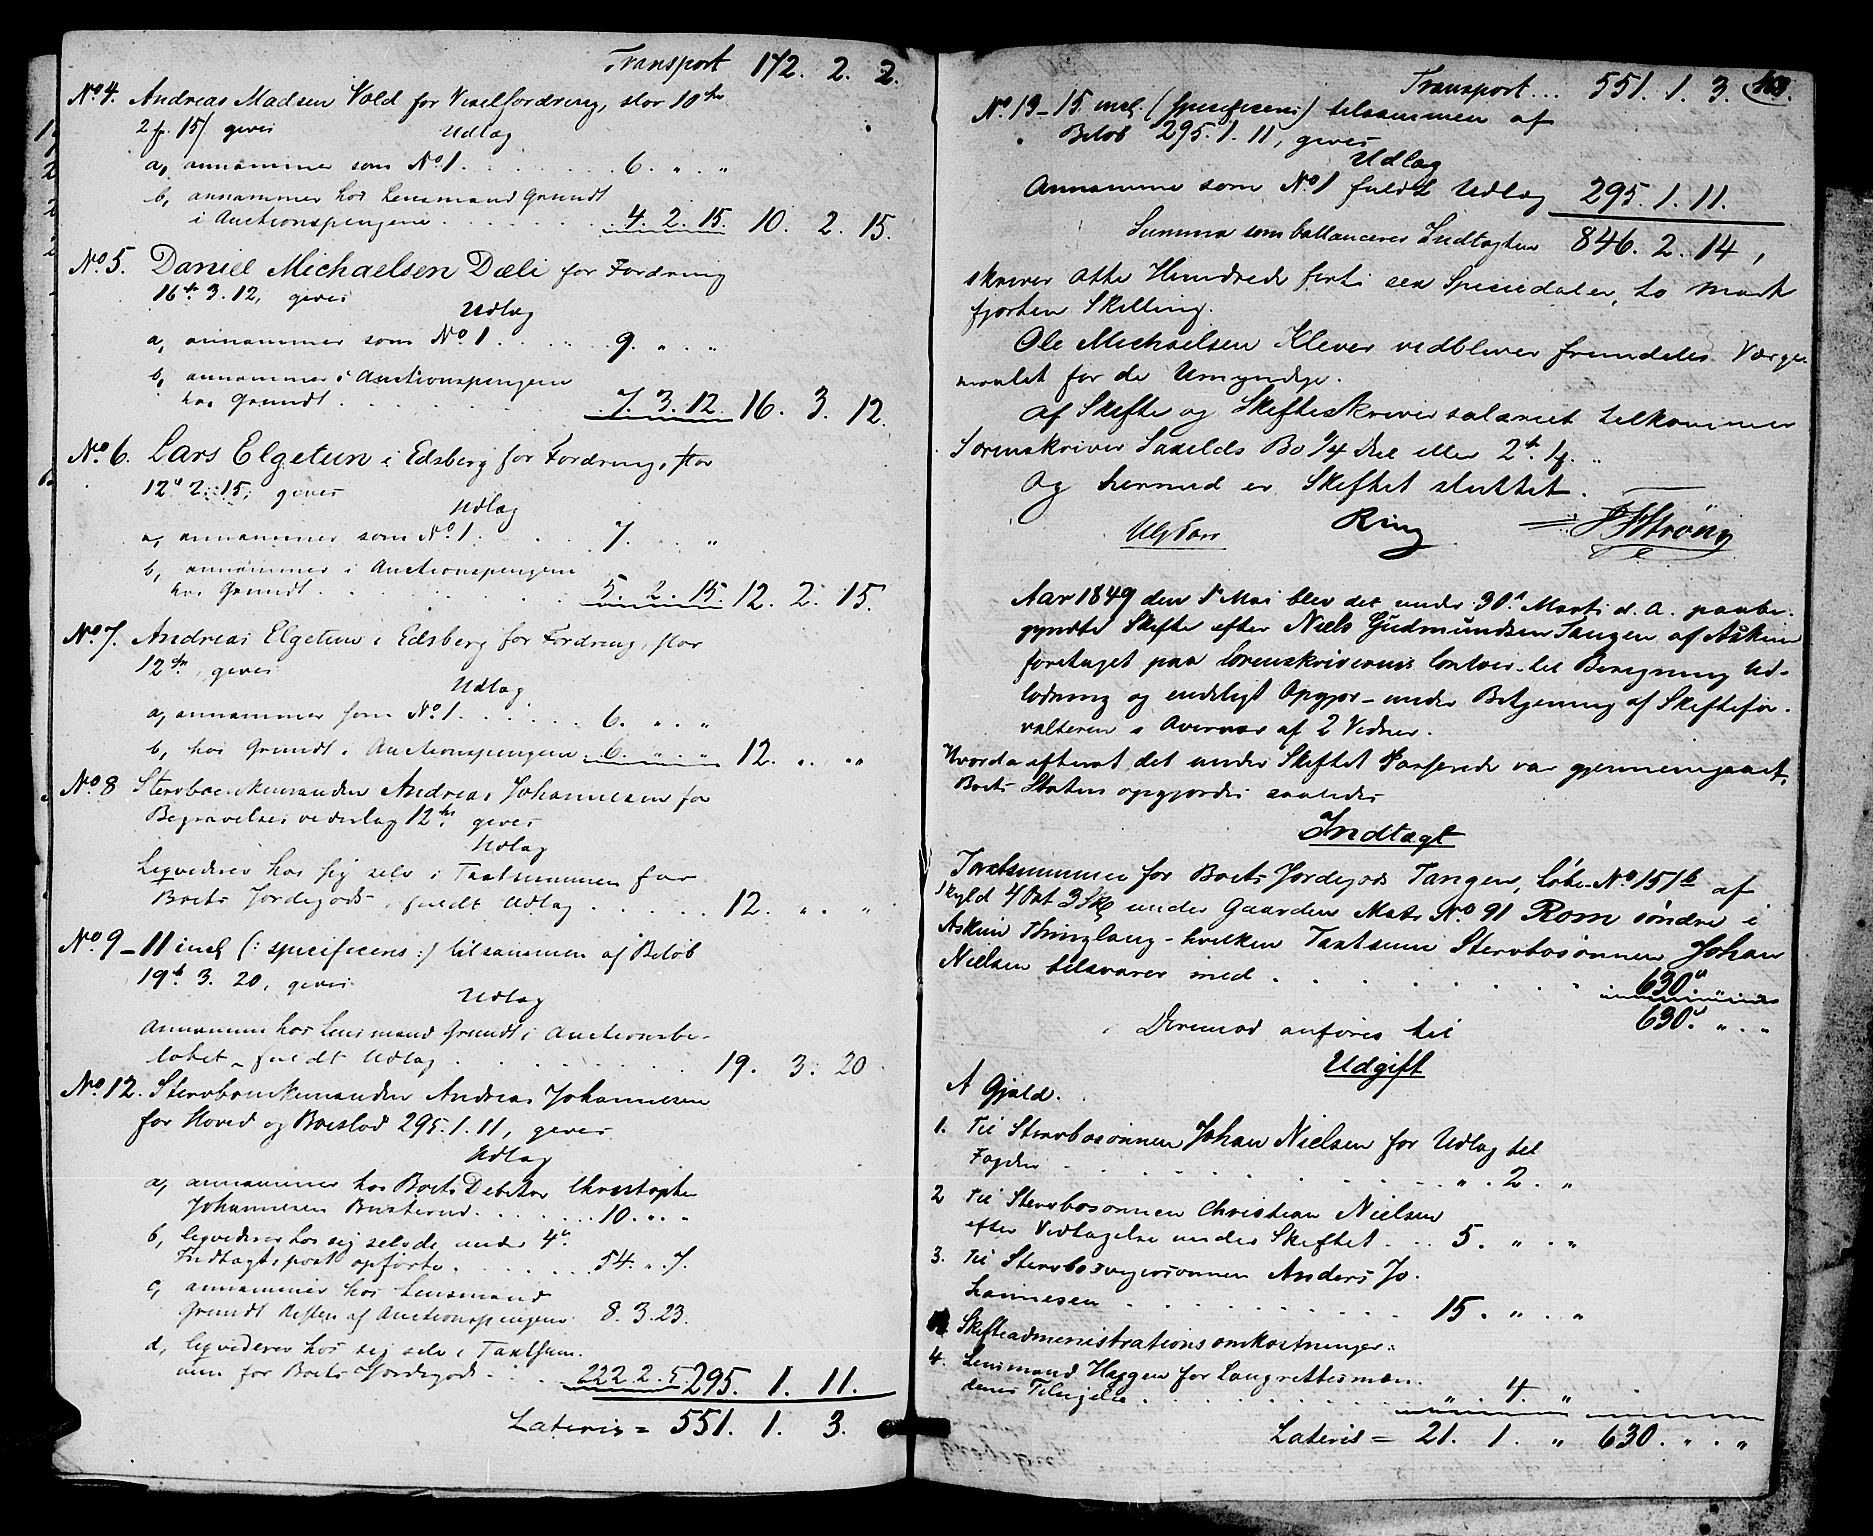 Transport 172. 2. 2.
No 4. Andreas Madsen Vold for Vexelfordring, stor 10 dr
2 f. 15/ gives
Udlæg
a, annammer som No 1. . . . . . . 6. „ . „
b, annammer hos Lensmand Grundt
i Auctionspengene . . . . . 4. 2. 15. 10. 2. 15.
No 5. Daniel Michaelsen Dæli for Fordring
16 dr 3. 12, gives
Udlæg
a, annammer som No 1. . . . . 9. „ . „
b, annammer i Auctionspengene
hos Grundt . . . . . . 7. 3. 12. 16. 3. 12.
No 6. Lars Elgetun i Edsberg for Fordring, stor
12 d 2. 15, gives
Udlæg
a, annammer som No 1. . . . 7. „
b, annammer i Auctionspengene
hos Grundt . . . . . . 5. 2. 15. 12. 2. 15.
No 7. Andreas Elgetun i Edsberg for Fordring, stor
12 dr, gives
Udlæg
a, annammer som No 1. . . . . . 6. „ . „
b, hos Grundt i Auctionspengene . 6. „ . „ 12. „ . „
No 8 Stervboenkemanden Andreas Johannesen for
Begravelsesvederlag 12 dr gives
Udlæg
Liqviderer hos sig selv i Taxtsummen for
Boets Jordegods, fuldt Udlæg . . . . . 12. „ . „
No 9 – 11 incl (: specificeres :) tilsammen af Beløb
19 d 3. 20, gives
Udlæg
Annamme hos Lensmand Grundt i Auctionsbe-
løbet – fuldt Udlæg . . . . . . . . 19. 3. 20
No 12. Stervboenkemanden Andreas Johannesen
for Hoved og Boeslod 295. 1. 11, gives
Udlæg
a, annammer hos Boets Debitor Christopher
Johannesen Busterud . . . . . . 10. „ . „
b, liqviderer hos sig selv de under 4 d
Indtægtspost opførte . . . . . . 54. „ . 7.
c, annammer hos Lensmand
Grundt Resten af Auctionspengene 8. 3. 23.
d, liqviderer hos sig selv i Taxtsum-
men for Boets Jordegods . . . . 222. 2. 5. 295. 1. 11.
Lateris = 551. 1. 3.
Transport . . . 551. 1. 3.
No 13 – 15 incl. (specificeres) tilsammen af
Beløb 295. 1. 11, gives
Udlæg
Annamme som No 1 fuldt Udlæg 295. 1. 11.
Summa som ballancerer Indtægten 846. 2. 14,
skriver otte Hundrede firti sex Speciedaler, to Mark
fjorten Skilling.
Ole Michaelsen Klever vedbliver fremdeles Værge-
maalet for de Umyndige.
Af Skifte og Skifteskriversalariet tilkommer
Sorenskriver Saxilds Bo 1/4 Deel eller 2 d. 1 f. „
Og hermed er Skiftet sluttet.
Ring
Strøm
Aar 1849 den 1 Mai blev det under 30 d Marts d. A. paabe-
gyndte Skifte efter Niels Gudmundsen Tangen af Askim
foretaget paa Sorenskriverens Contoir til Beregning Ud-
lodning og endeligt Opgjør – under Betjening af Skiftefor-
valteren i Overvær af 2 Vidner.
Hvorda efterat det under Skiftet Passerede var gjennemgaaet,
Boets Status opgjordes saaledes
Indtægt
Taxtsummen for Boets Jordegods Tangen, Løbe-No 151 b af
Skyld 4 Ort 3 Skg under Gaarden Matr No 91 Rom søndre i
Askim Thinglaug – hvilken Taxtsum Stervbosønnen Johan
Nielsen tilsvarer med . . . . . . . . 630 d
630. „ . „
Derimod anføres til
Udgift
A Gjæld.
1. Til Stervbosønnen Johan Nielsen for Udlæg til
Fogden . . . . . . . . . . . „ . 2. „
2 Til Stervbosønnen Christian Nielsen
efter Vedtagelse under Skiftet . . . 5. „ . „
3. Til Stervbosvigersønnen Anders Jo-
hannesen . . . . . . . . . . . 15. „ . „
Skifteadministrationsomkostninger:
4. Lensmand Heggen for Laugrettesmæn-
denes Tilsigelse . . . . . . . . „ . 4. „
Lateris = 21. 1. „ 630. „ . „